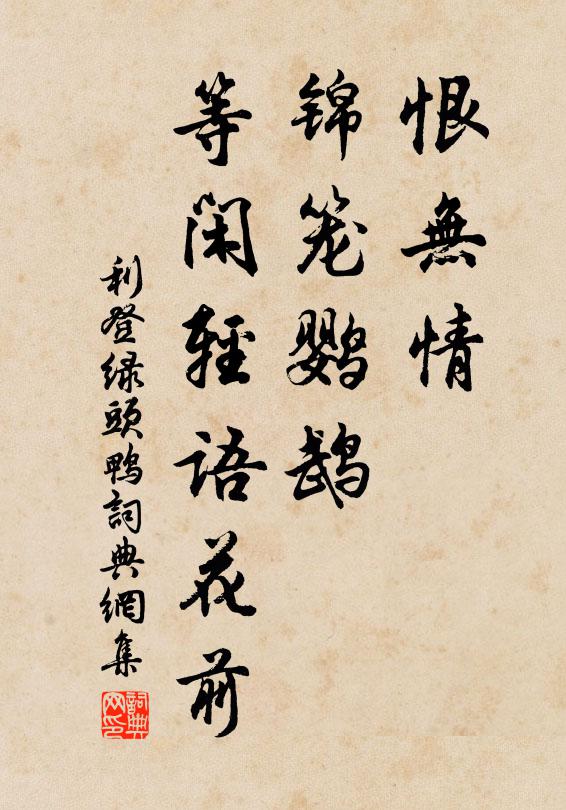 恨無情
锦笼鹦鹉
等闲輕語花前
利登绿頭鴨詞典網集
詞典网印